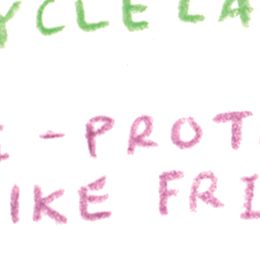 YCLE LA
- PROT
IKE FRI